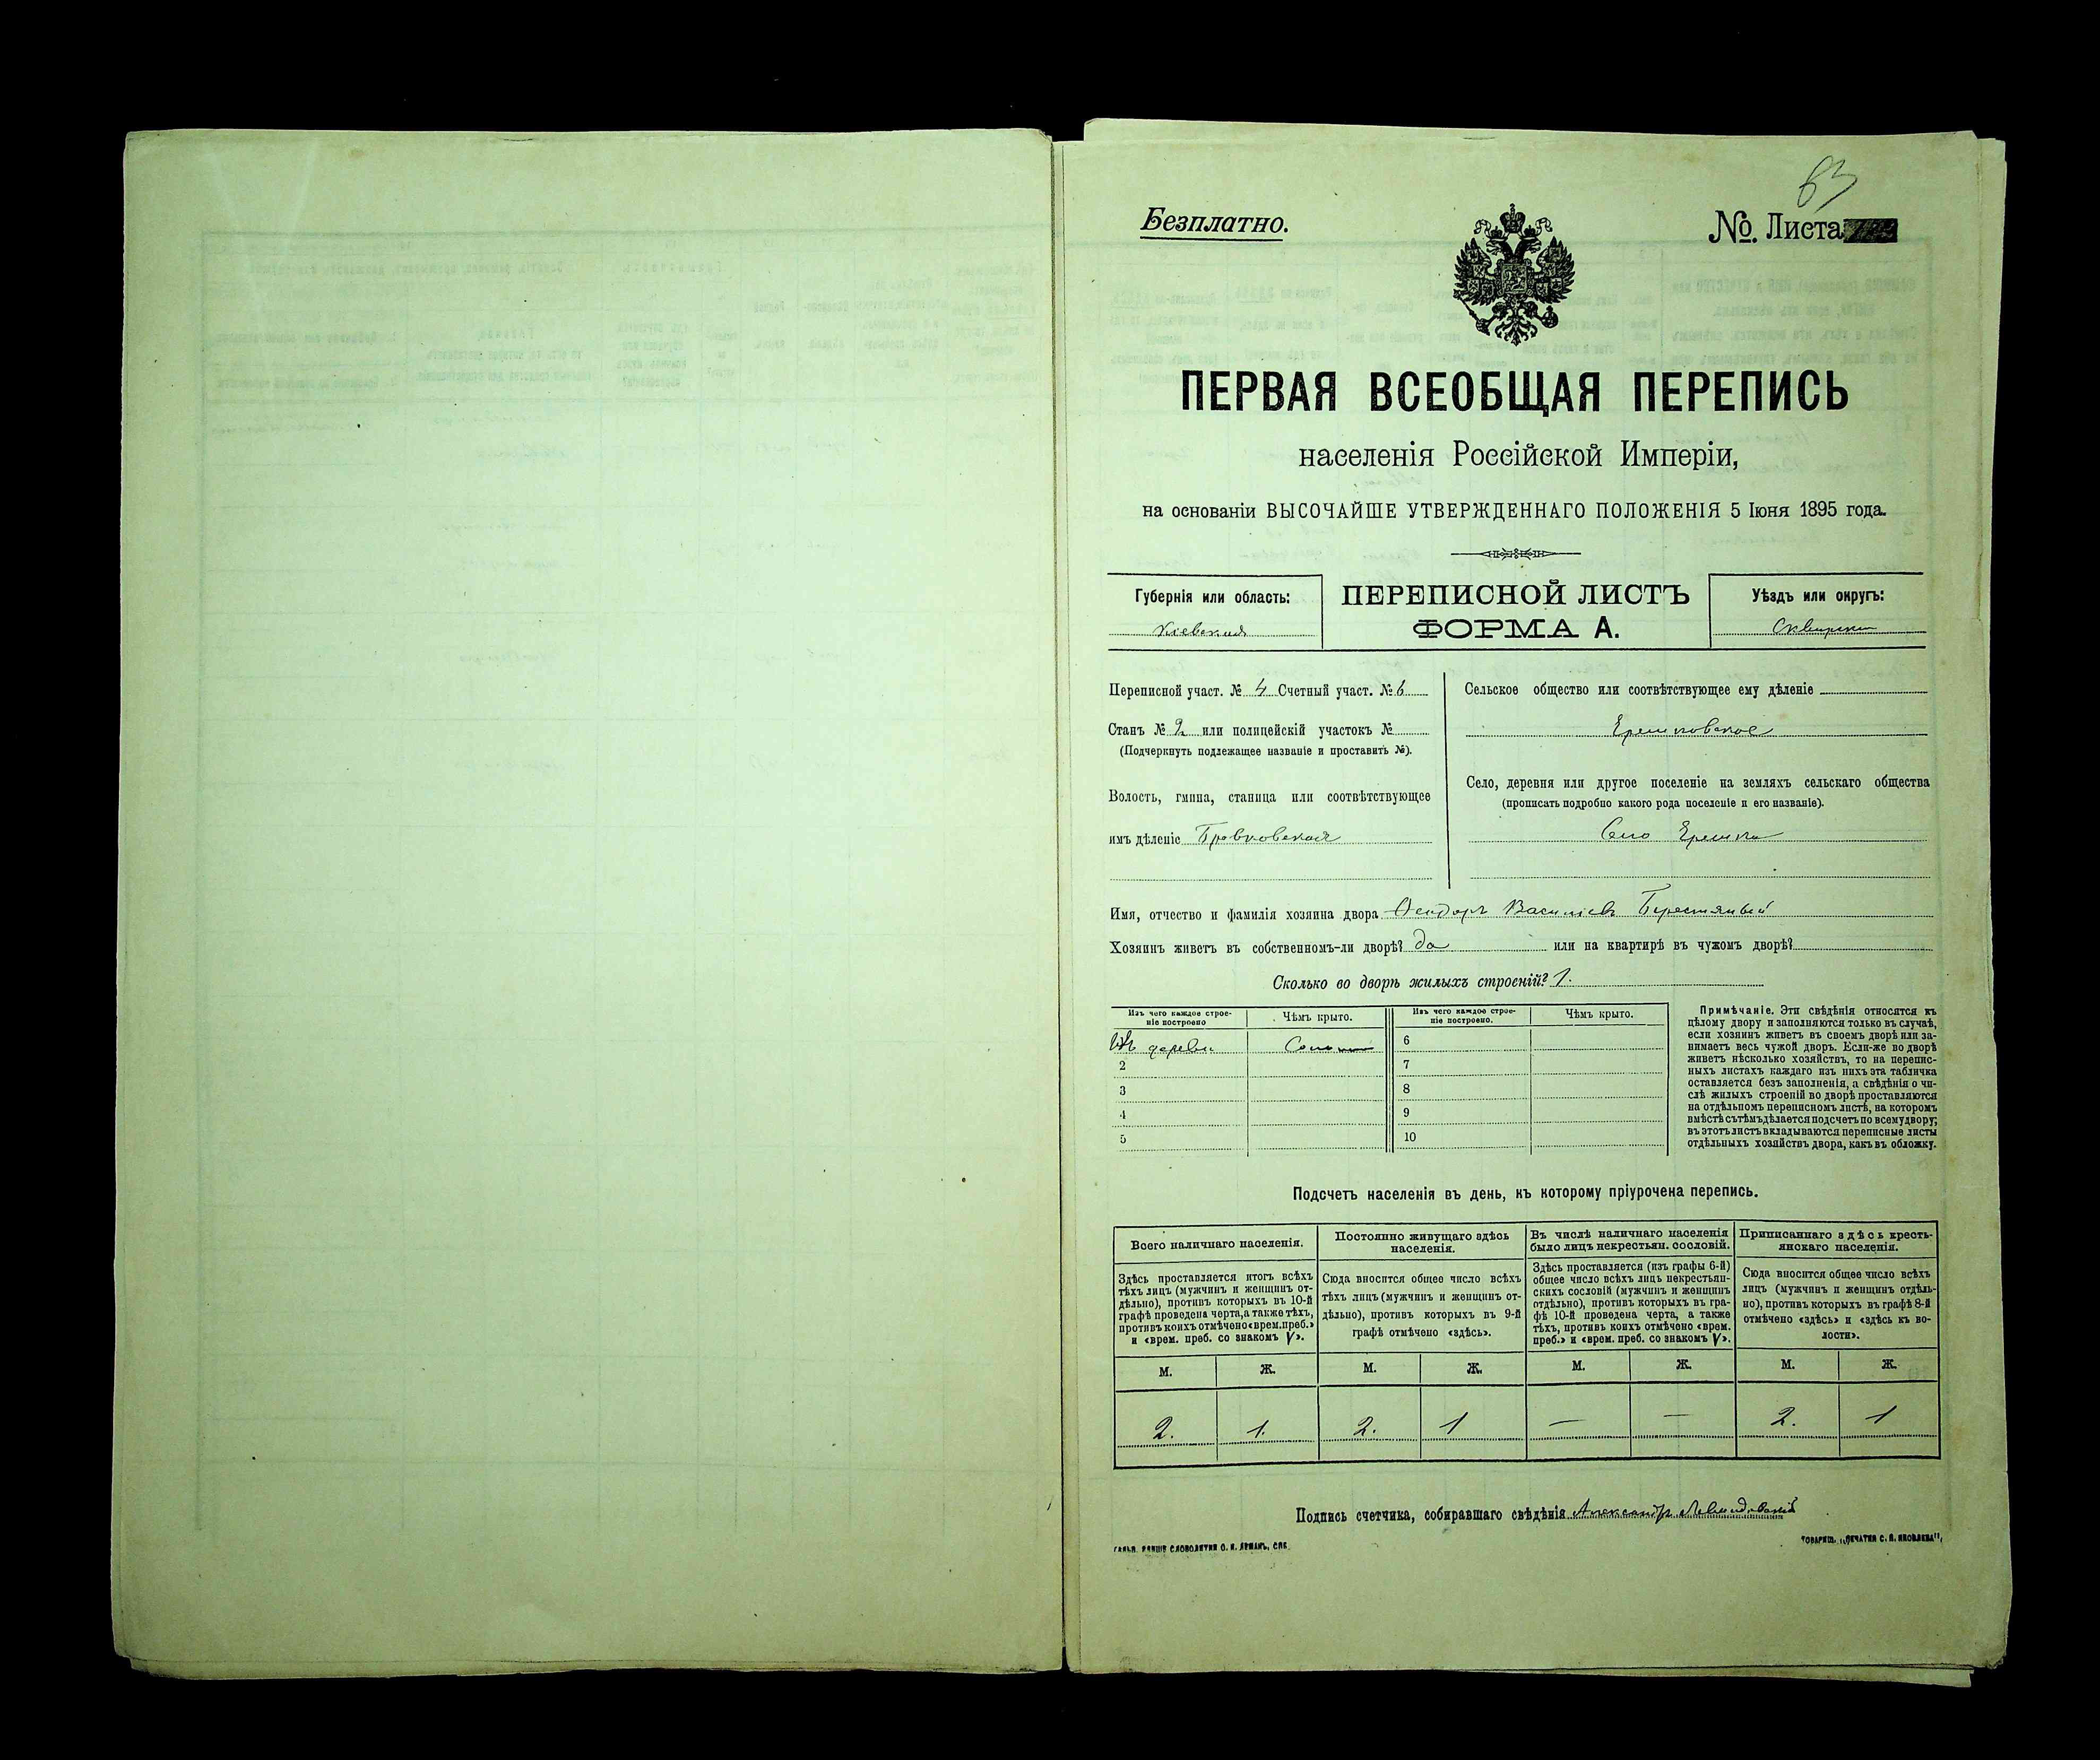 63
Безплатно.
№. Листа
ПЕРВАЯ ВСЕОБЩАЯ ПЕРЕПИСЬ
населенія Россійской Имперіи,
на основаніи ВЫСОЧАЙШЕ УТВЕРЖДЕННАГО ПОЛОЖЕНІЯ 5 Іюня 1895 года.
Губернія или область:
Кіевская
ПЕРЕПИСНОЙ ЛИСТЪ
ФОРМА А.
Уѣздъ или округъ:
Сквирскій
Переписной участ. № 4 Счетный участ. № 6
Станъ № 2 или полицейскій участокъ №
(Подчеркнуть подлежащее названіе и проставить №).
Волость, гмина, станица или соотвѣтствующее
имъ дѣленіе Бровковская
Сельское общество или соотвѣтствующее ему дѣленіе
Ерешковское
Село, деревня или другое поселеніе на земляхъ сельскаго общества
(прописать подробно какого рода поселеніе и его названіе).
Село Ерешки
Имя, отчество и фамилія хозяина двора Феидоръ Василіевъ Берестяный
Хозяинъ живетъ въ собственномъ-ли дворѣ? да или на квартирѣ въ чужомъ дворѣ?
Сколько во дворѣ жилыхъ строеній? 1.
Изъ чего каждое строеніе построено
Чѣмъ крыто.
Изъ чего каждое строеніе построено.
Чѣмъ крыто.
Изъ дерева Солом 6
2 7
3 8
4 9
5 10
Примѣчаніе. Эти свѣдѣнія относятся къ
цѣлому двору и заполняются только въ случаѣ,
если хозяинъ живетъ въ своемъ дворѣ или за-
нимаетъ весь чужой дворъ. Если-же во дворѣ
живетъ нѣсколько хозяйствъ, то на перепис-
ныхъ листахъ каждаго изъ нихъ эта табличка
оставляется безъ заполненія, а свѣдѣнія о чи-
слѣ жилыхъ строеній во дворѣ проставляются
на отдѣльномъ переписномъ листѣ, на которомъ
вмѣстѣ съ тѣмъ дѣлается подсчетъ по всему двору;
въ этотъ листъ вкладываются переписные листы
отдѣльныхъ хозяйствъ двора, какъ въ обложку.
Подсчетъ населенія въ день, къ которому пріурочена перепись.
Всего наличнаго населенія.
Здѣсь проставляется итогъ всѣхъ
тѣхъ лицъ (мужчинъ и женщинъ от-
дѣльно), противъ которыхъ въ 10-й
графѣ проведена черта, а также тѣхъ,
противъ коихъ отмѣчено «врем. преб.»
и «врем. преб. со знакомъ V».
Постоянно живущаго здѣсь
населенія.
Сюда вносится общее число всѣхъ
тѣхъ лицъ (мужчинъ и женщинъ от-
дѣльно), противъ которыхъ въ 9-й
графѣ отмѣчено «здѣсь».
Въ числѣ наличнаго населенія
было лицъ некрестьян. сословій.
Здѣсь проставляется (изъ графы 6-й)
общее число всѣхъ лицъ некрестьян-
скихъ сословій (мужчинъ и женщинъ
отдѣльно), противъ которыхъ въ гра-
фѣ 10-й проведена черта, а также
тѣхъ, противъ коихъ отмѣчено «врем.
преб.» и «врем. преб. со знакомъ V».
Приписаннаго здѣсь кресть-
янскаго населенія.
Сюда вносится общее число всѣхъ
лицъ (мужчинъ и женщинъ отдѣль-
но), противъ которыхъ въ графѣ 8-й
отмѣчено «здѣсь» и «здѣсь къ во-
лости».
М. Ж. М. Ж. М. Ж. М. Ж.
2. 1. 2. 1 — — 2. 1
Подпись счетчика, собиравшаго свѣдѣнія Александръ Левандовскій
ТОВАРИЩ. „ПЕЧАТНЯ С. П. ЯКОВЛЕВА“,